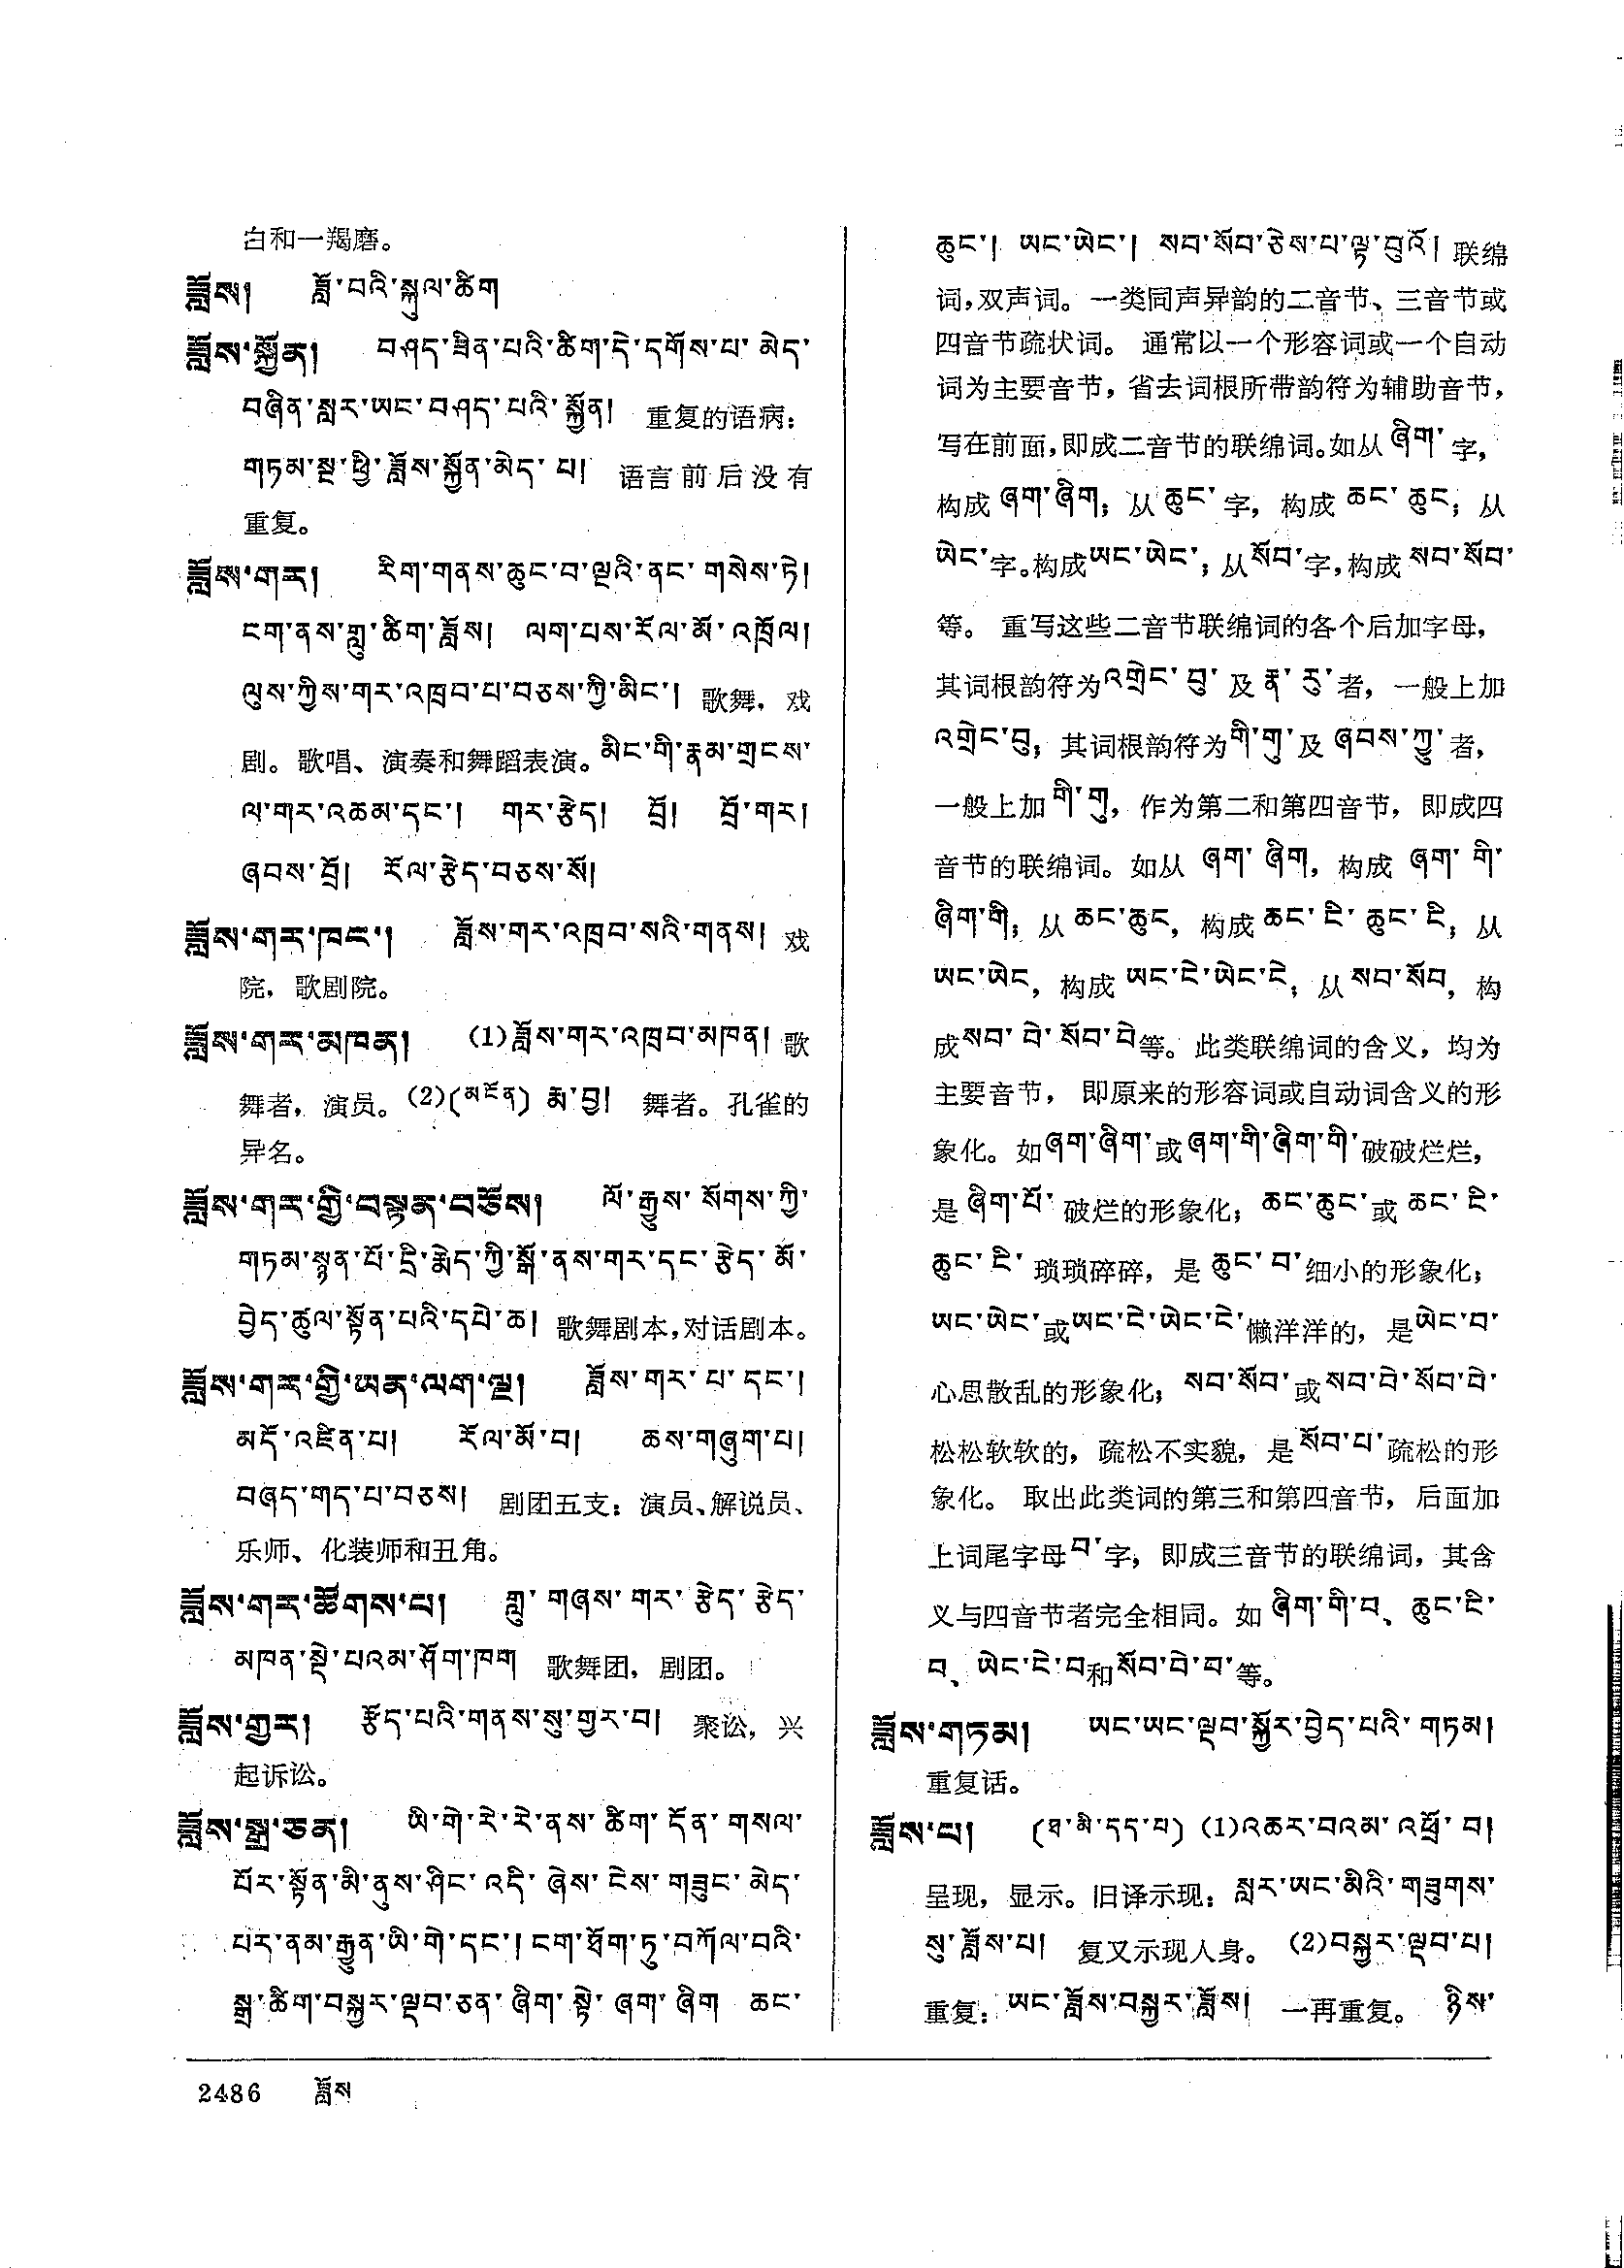 白和一羯磨。
ཟློས། ཟློ་བའི་སྐུལ་ཚིག
ཟློས་སྐྱོན། བཤད་ཟིན་པའི་ཚིག་དེ་དགོས་པ་མེད་
བཞིན་སླར་ཡང་བཤད་པའི་སྐྱོན། 重复的语病：
གཏམ་སྔ་ཕྱི་ཟློས་སྐྱོན་མེད་པ། 语言前后没有
重复。
ཟློས་གར། རིག་གནས་ཆུང་བ་ལྔའི་ནང་གསེས་ཏེ།
ངག་ནས་གླུ་ཚིག་ཟློས། ལག་པས་རོལ་མོ་འཁྲོལ།
ལུས་ཀྱིས་གར་འཁྲབ་པ་བཅས་ཀྱི་མིང་། 歌舞，戏
剧。歌唱、演奏和舞蹈表演。མིང་གི་རྣམ་གྲངས་
ལ་གར་འཆམ་དང་། གར་རྩེད། བྲོ། བྲོ་གར།
ཞབས་བྲོ། རོལ་རྩེད་བཅས་སོ།
ཟློས་གར་ཁང་། ཟློས་གར་འཁྲབ་སའི་གནས། 戏
院，歌剧院。
ཟློས་གར་མཁན། (1)ཟློས་གར་འཁྲབ་མཁན། 歌
舞者，演员。(2)(མངོན) རྨ་བྱ། 舞者。孔雀的
异名。
ཟློས་གར་གྱི་བསྟན་བཅོས། ལོ་རྒྱུས་སོགས་ཀྱི་
གཏམ་སྙན་པོ་དྲི་མེད་ཀྱི་སྒོ་ནས་གར་དང་རྩེད་མོ་
བྱེད་ཚུལ་སྟོན་པའི་དཔེ་ཆ། 歌舞剧本，对话剧本。
ཟློས་གར་གྱི་ཡན་ལག་ལྔ། ཟློས་གར་པ་དང་།
མདོ་འཛིན་པ། རོལ་མོ་བ། ཆས་གཞུག་པ།
བཞད་གད་པ་བཅས། 剧团五支：演员、解说员、
乐师、化装师和丑角。
ཟློས་གར་ཚོགས་པ། གླུ་གཞས་གར་རྩེད་རྩེད་
མཁན་སྡེ་པའམ་ཤོག་ཁག 歌舞团，剧团。
ཟློས་གྱར། རྩོད་པའི་གནས་སུ་གྱར་བ། 聚讼，兴
起诉讼。
ཟློས་སྒྲ་ཅན། ཡི་གེ་རེ་རེ་ནས་ཚིག་དོན་གསལ་
པོར་སྟོན་མི་ནུས་ཤིང་འདི་ཞེས་ངེས་གཟུང་མེད་
པར་ནམ་རྒྱུན་ཡི་གེ་དང་། ངག་ཐོག་ཏུ་བཀོལ་བའི་
སྒྲ་ཚིག་བསྐྱར་ལྡབ་ཅན་ཞིག་སྟེ་ཞག་ཞིག ཆང་
ཆུང་། ཡང་ཡེང་། སབ་སོབ་ཅེས་པ་ལྟ་བུའོ། 联绵
词，双声词。一类同声异韵的二音节、三音节或
四音节疏状词。 通常以一个形容词或一个自动
词为主要音节，省去词根所带韵符为辅助音节，
写在前面，即成二音节的联绵词。如从ཞིག་字，
构成ཞག་ཞིག；从ཆུང་字，构成ཆང་ཆུང；从
ཡེང་字。构成ཡང་ཡེང་；从སོབ་字，构成སབ་སོབ་
等。 重写这些二音节联绵词的各个后加字母，
其词根韵符为འགྲེང་བུ་及ན་རུ་者，一般上加
འགྲེང་བུ；其词根韵符为གི་གུ་及ཞབས་ཀྱུ་者，
一般上加གི་གུ，作为第二和第四音节，即成四
音节的联绵词。如从ཞག་ཞིག，构成ཞག་གི་
ཞིག་གི；从ཆང་ཆུང，构成ཆང་ངི་ཆུང་ངི；从
ཡང་ཡེང，构成ཡང་ངེ་ཡེང་ངེ；从སབ་སོབ，构
成སབ་བེ་སོབ་བེ等。此类联绵词的含义，均为
主要音节， 即原来的形容词或自动词含义的形
象化。如ཞག་ཞིག་或ཞག་གི་ཞིག་གི་破破烂烂，
是ཞིག་པོ་破烂的形象化；ཆང་ཆུང་或ཆང་ངི་
ཆུང་ངི་琐琐碎碎，是ཆུང་བ་细小的形象化；
ཡང་ཡེང་或ཡང་ངེ་ཡེང་ངེ་懒洋洋的，是ཡེང་བ་
心思散乱的形象化；སབ་སོབ་或སབ་བེ་སོབ་བེ་
松松软软的，疏松不实貌，是སོབ་པ་疏松的形
象化。 取出此类词的第三和第四音节，后面加
上词尾字母བ་字，即成三音节的联绵词，其含
义与四音节者完全相同。如ཞིག་གི་བ、ཆུང་ངི་
བ、ཡེང་ངེ་བ和སོབ་བེ་བ་等。
ཟློས་གཏམ། ཡང་ཡང་ལྡབ་སྐྱོར་བྱེད་པའི་གཏམ།
重复话。
ཟློས་པ། (ཐ་མི་དད་པ) (1)འཆར་བའམ་འཕྲོ་བ།
呈现，显示。旧译示现：སླར་ཡང་མིའི་གཟུགས་
སུ་ཟློས་པ། 复又示现人身。(2)བསྐྱར་ལྡབ་པ།
重复：ཡང་ཟློས་བསྐྱར་ཟློས། 一再重复。 ཉིས་
2486 ཟློས